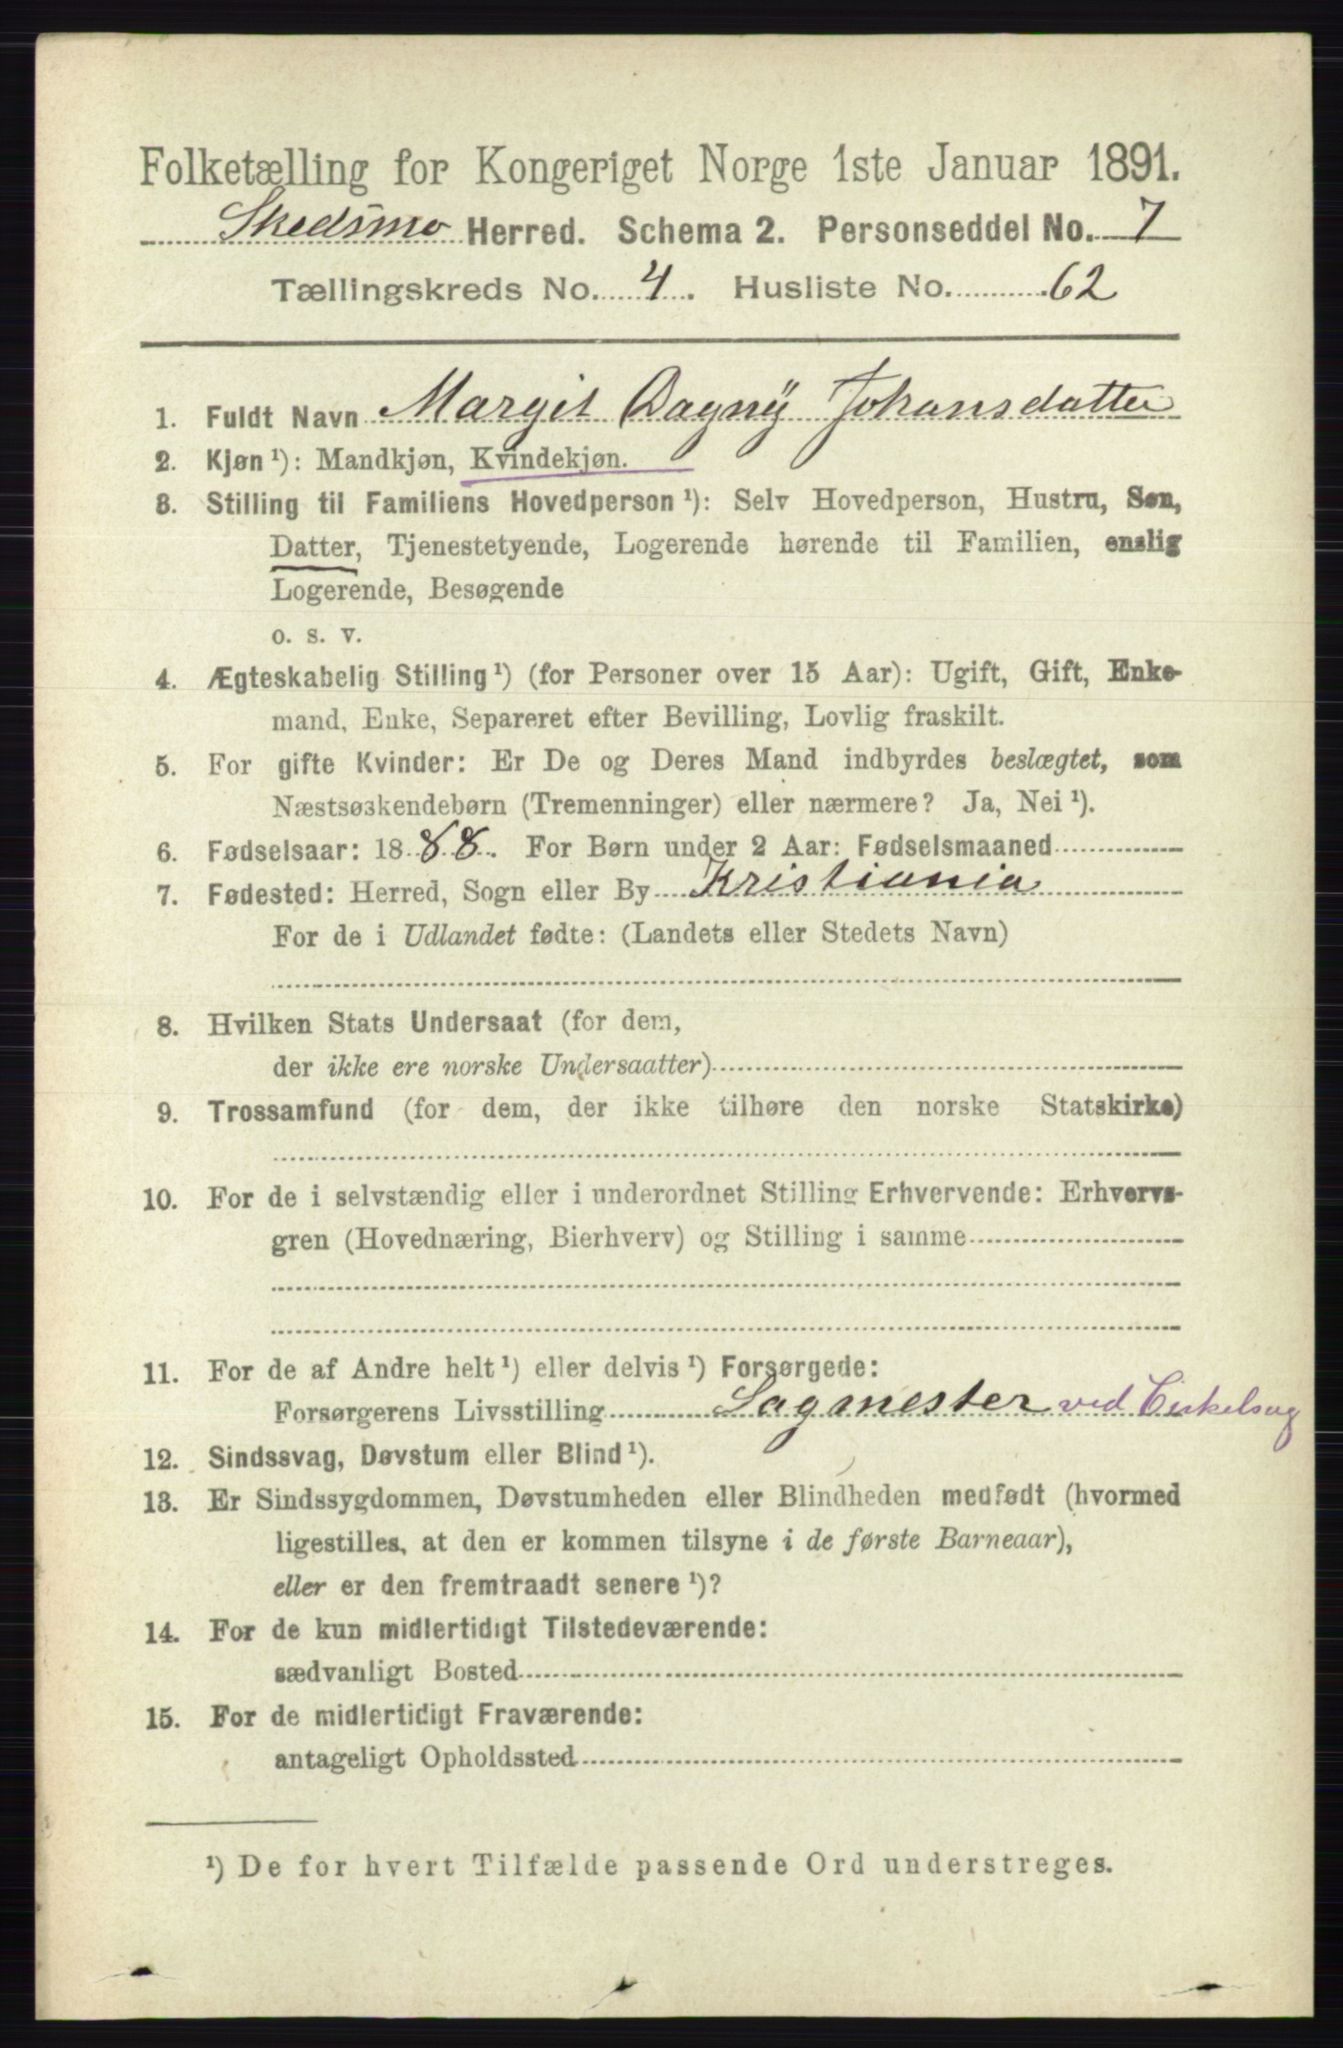 Folketælling for Kongeriget Norge 1ste Januar 1891.
Skedsmo Herred. Schema 2. Personseddel No. 7
Tællingskreds No. 4. Husliste No. 62
1. Fuldt Navn Margit Dagny Johansdatter
2. Kjøn ¹): Mandkjøn, Kvindekjøn.
3. Stilling til Familiens Hovedperson ¹): Selv Hovedperson, Hustru, Søn,
Datter, Tjenestetyende, Logerende hørende til Familien, enslig
Logerende, Besøgende
o. s. v.
4. Ægteskabelig Stilling ¹) (for Personer over 15 Aar): Ugift, Gift, Enke-
mand, Enke, Separeret efter Bevilling, Lovlig fraskilt.
5. For gifte Kvinder: Er De og Deres Mand indbyrdes beslægtet, som
Næstsøskendebørn (Tremenninger) eller nærmere? Ja, Nei ¹).
6. Fødselsaar: 1888. For Børn under 2 Aar: Fødselsmaaned
7. Fødested: Herred, Sogn eller By Kristiania
For de i Udlandet fødte: (Landets eller Stedets Navn)
8. Hvilken Stats Undersaat (for dem,
der ikke ere norske Undersaatter)
9. Trossamfund (for dem, der ikke tilhøre den norske Statskirke)
10. For de i selvstændig eller i underordnet Stilling Erhvervende: Erhvervs-
gren (Hovednæring, Bierhverv) og Stilling i samme
11. For de af Andre helt ¹) eller delvis ¹) Forsørgede:
Forsørgerens Livsstilling Sagmester ved Cirkelsag
12. Sindssvag, Døvstum eller Blind ¹).
13. Er Sindssygdommen, Døvstumheden eller Blindheden medfødt (hvormed
ligestilles, at den er kommen tilsyne i de første Barneaar),
eller er den fremtraadt senere ¹)?
14. For de kun midlertidigt Tilstedeværende:
sædvanligt Bosted
15. For de midlertidigt Fraværende:
antageligt Opholdssted
¹) De for hvert Tilfælde passende Ord understreges.